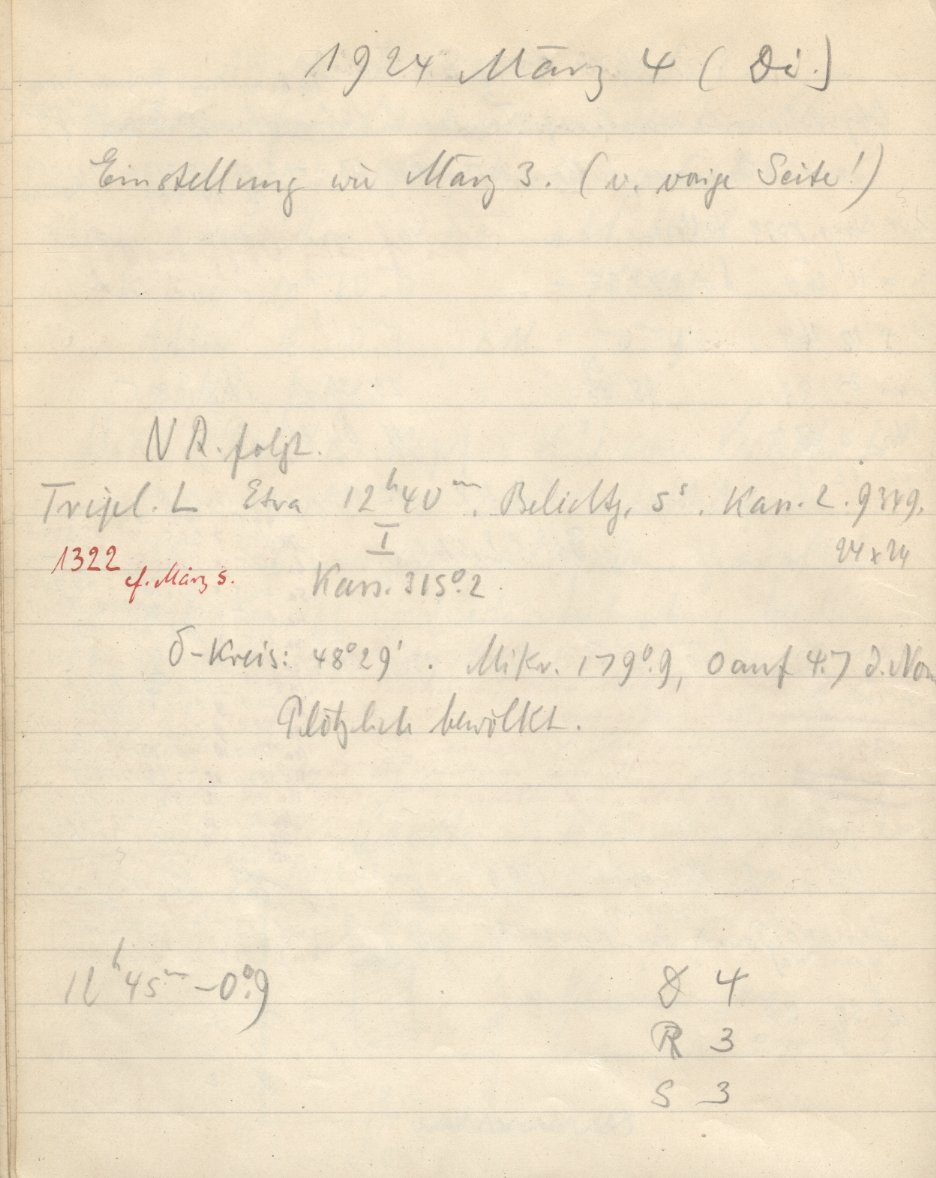 1924 März 4 (Di.)
Einstellung wie März 3. (v. vorige Seite!)
N R. folgt.
Tripel. L Etwa 12ʰ40ᵐ. Belichtg. 5ˢ. Kass. 2. 9 9.
I
24 x 24
1322 cf. März 5.
Kass. 315°.2
δ-Kreis: 48°29'. Mikr. 179°.9, 0 auf 4.7 d. Non
Plötzlich bewölkt.
12ʰ45ᵐ -0°.9
4
R 3
S 3